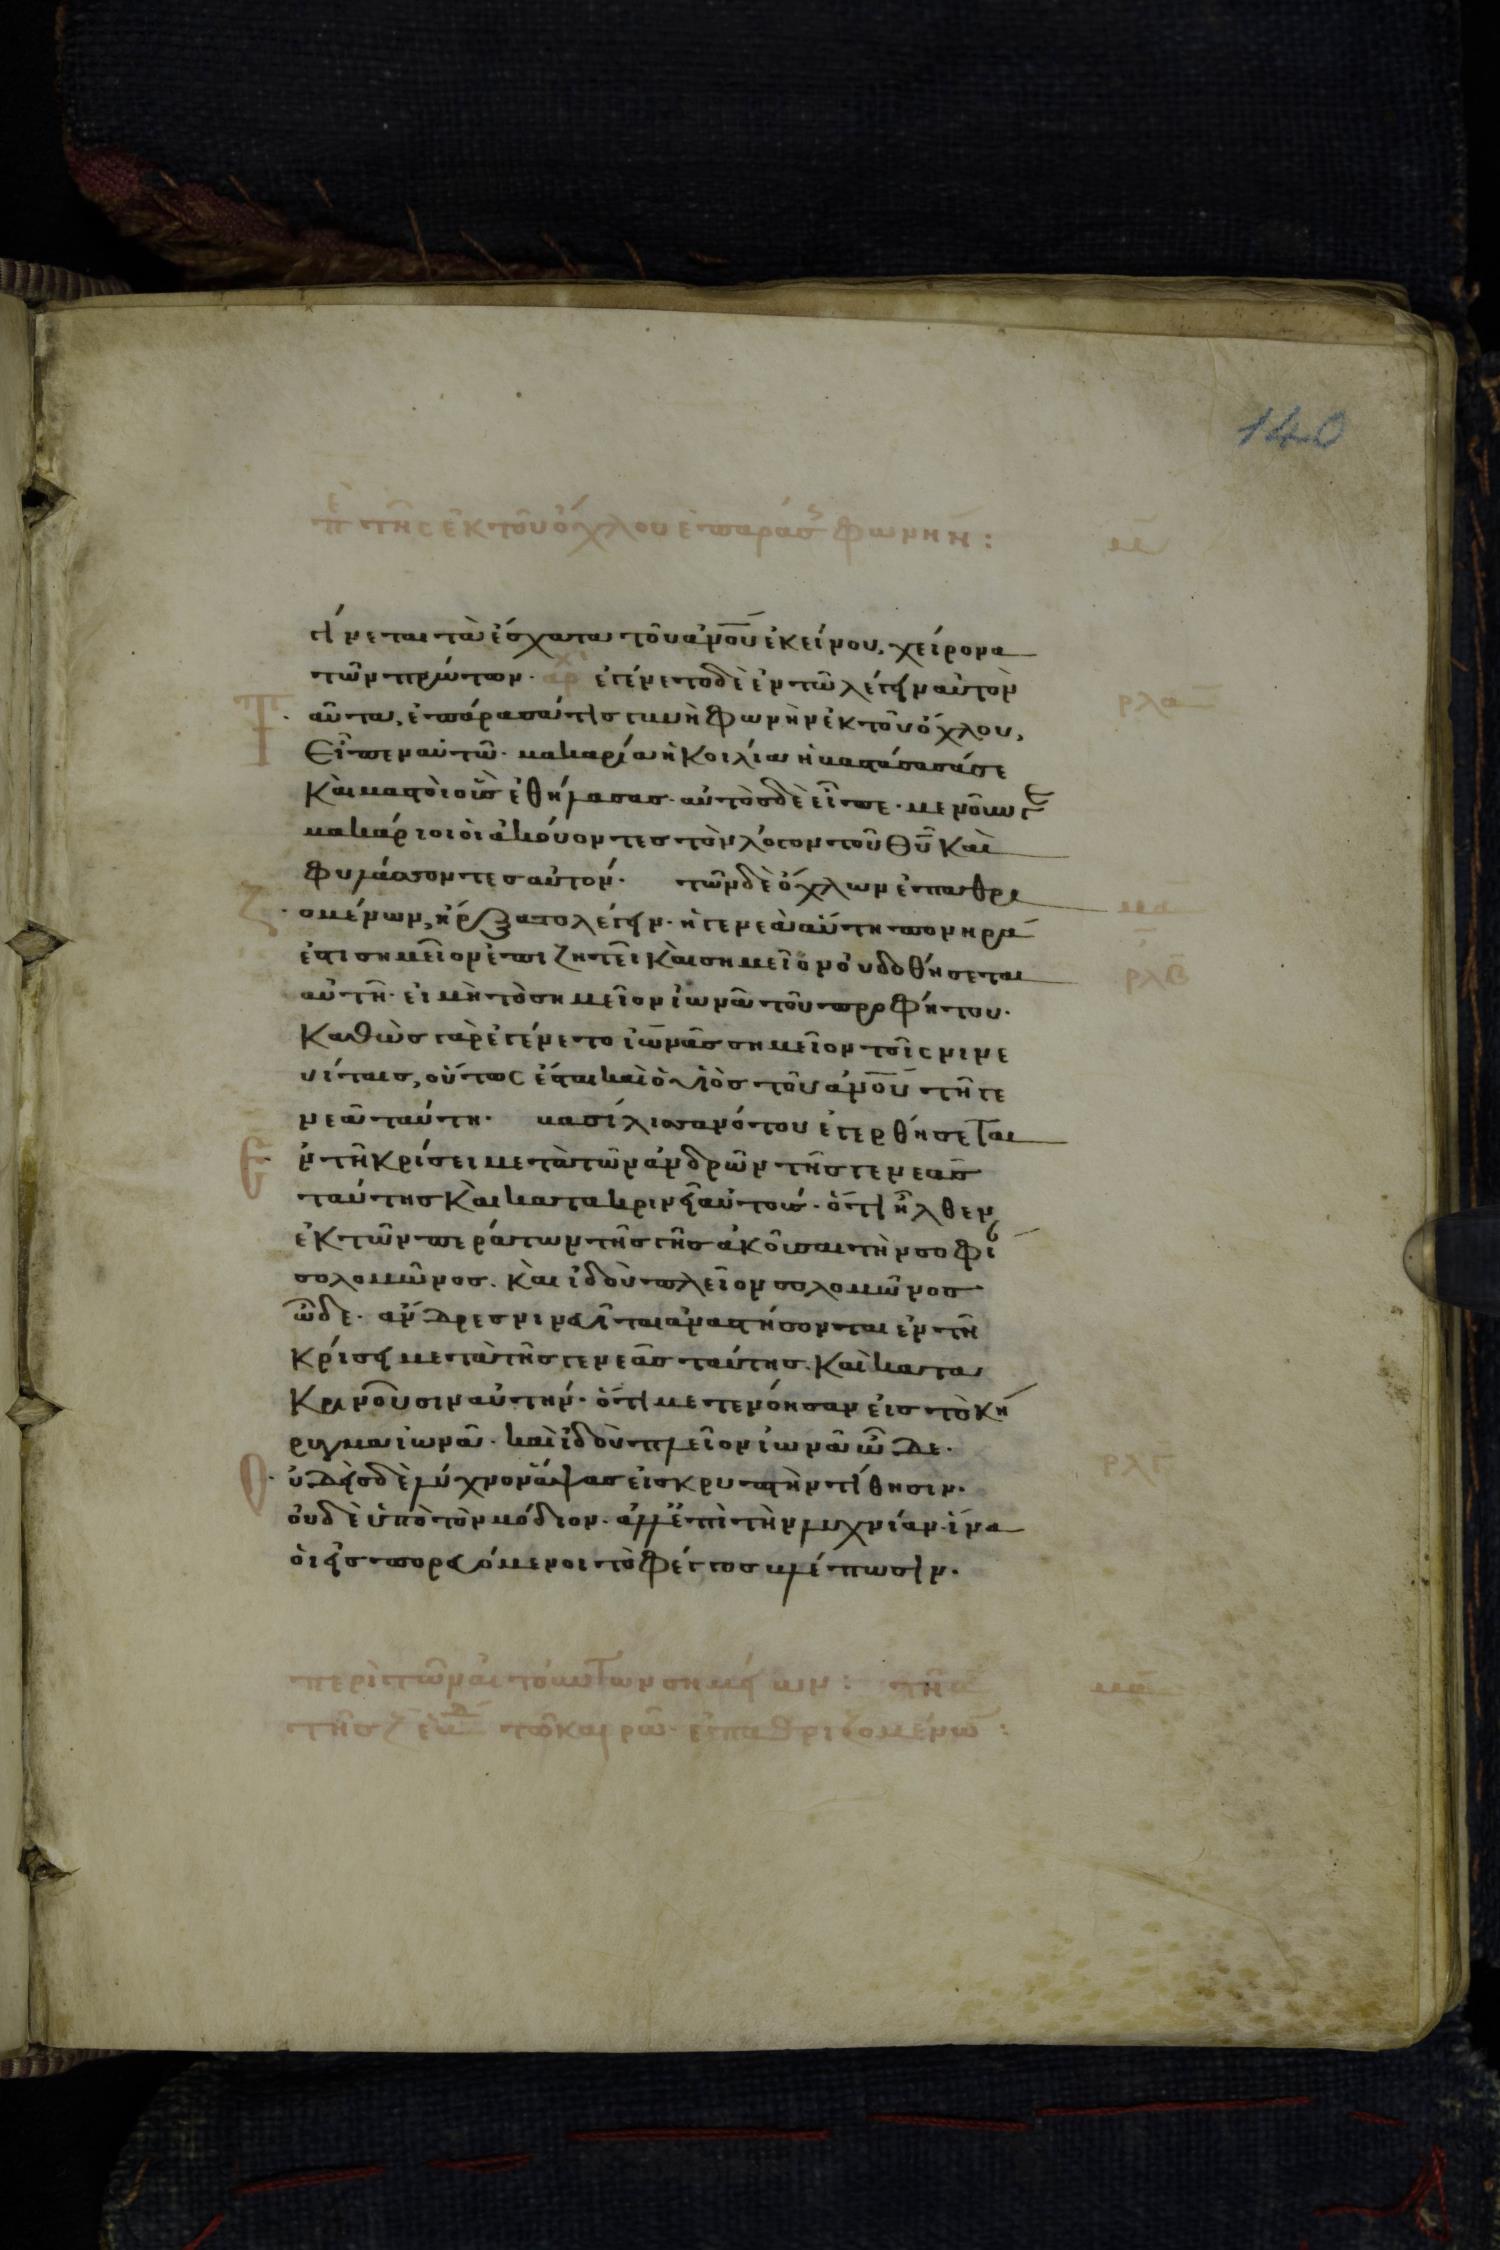 140
π ε τῆς ἐκ τοῦ ὄχλου ἐπαράσ φωνην : μ
γίνεται τὰ ἔσχατα τοῦ ἀνοῦ ἐκείνου, χείρονα
τῶν πρώτων. ἐγένετο δὲ ἐν τῶ λέγειν αὐτὸν ρλα
ταῦτα, ἐπάρασά τις γυνὴ φωνὴν ἐκ τοῦ ὄχλου,
εἶπεν αὐτῶ. μακαρία ἡ κοιλία ἡ βαστάσασά σε
καὶ μαστοὶ οὓς ἐθήλασας. αὐτὸς δὲ εἶπε. μενοῦν γε
μακάριοι οἱ ἀκούοντες τὸν λόγον τοῦ θῦ καὶ
φυλάσσοντες αὐτόν. τῶν δὲ ὄχλων ἐπαθροι
ζομένων, ἤρξατο λέγειν. ἡ γενεὰ αὕτη πονηρά μα
ἐστι σημεῖον ἐπιζητεῖ καὶ σημεῖον οὐ δοθήσεται ρλβ
αὐτῆ. εἰ μὴ τὸ σημεῖον ἰωνᾶ τοῦ προφήτου.
καθὼς γὰρ ἐγένετο ἰωνᾶς σημεῖον τοῖς νινε
υίταις, οὕτως ἔσται καὶ ὁ υἱὸς τοῦ ἀνοῦ τῆ γε
νεᾶ ταύτη. βασίλισσα νότου ἐγερθήσεται
ἐν τῆ κρίσει μετὰ τῶν ἀνδρῶν τῆς γενεᾶς
ταύτης καὶ κατακρινεῖ αὐτούς. ὅτι ἦλθεν
ἐκ τῶν περάτων τῆς γῆς ἀκοῦσαι τὴν σοφί
σολομῶνος. καὶ ἰδοὺ πλεῖον σολομῶνος
ὧδε. ἄνδρες νινευῖται ἀναστήσονται ἐν τῆ
κρίσει μετὰ τῆς γενεᾶς ταύτης. καὶ κατα
κρινοῦσιν αὐτήν. ὅτι μετενόησαν εἰς τὸ κή
ρυγμα ἰωνᾶ. καὶ ἰδοὺ πλεῖον ἰωνᾶ ὧδε.
οὐδεὶς δὲ λύχνον ἅψας εἰς κρυπτὴν τίθησιν. ρλγ
οὐδὲ ὑπὸ τὸν μόδιον. ἀλλ' ἐπὶ τὴν λυχνίαν. ἵνα
οἱ εἰσπορευόμενοι τὸ φέγγος βλέπωσιν.
περὶ τῶν αἰτούντων σημεῖον : τῆ μα
τῆς ζ τῶ καιρῶ ἐπαθροιζομένων :